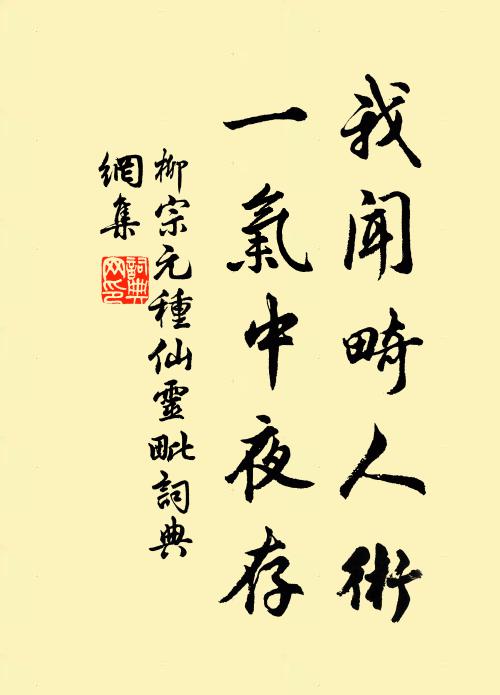 我聞畸人術
一氣中夜存
柳宗元種仙靈毗詞典
網集
詞典
网印